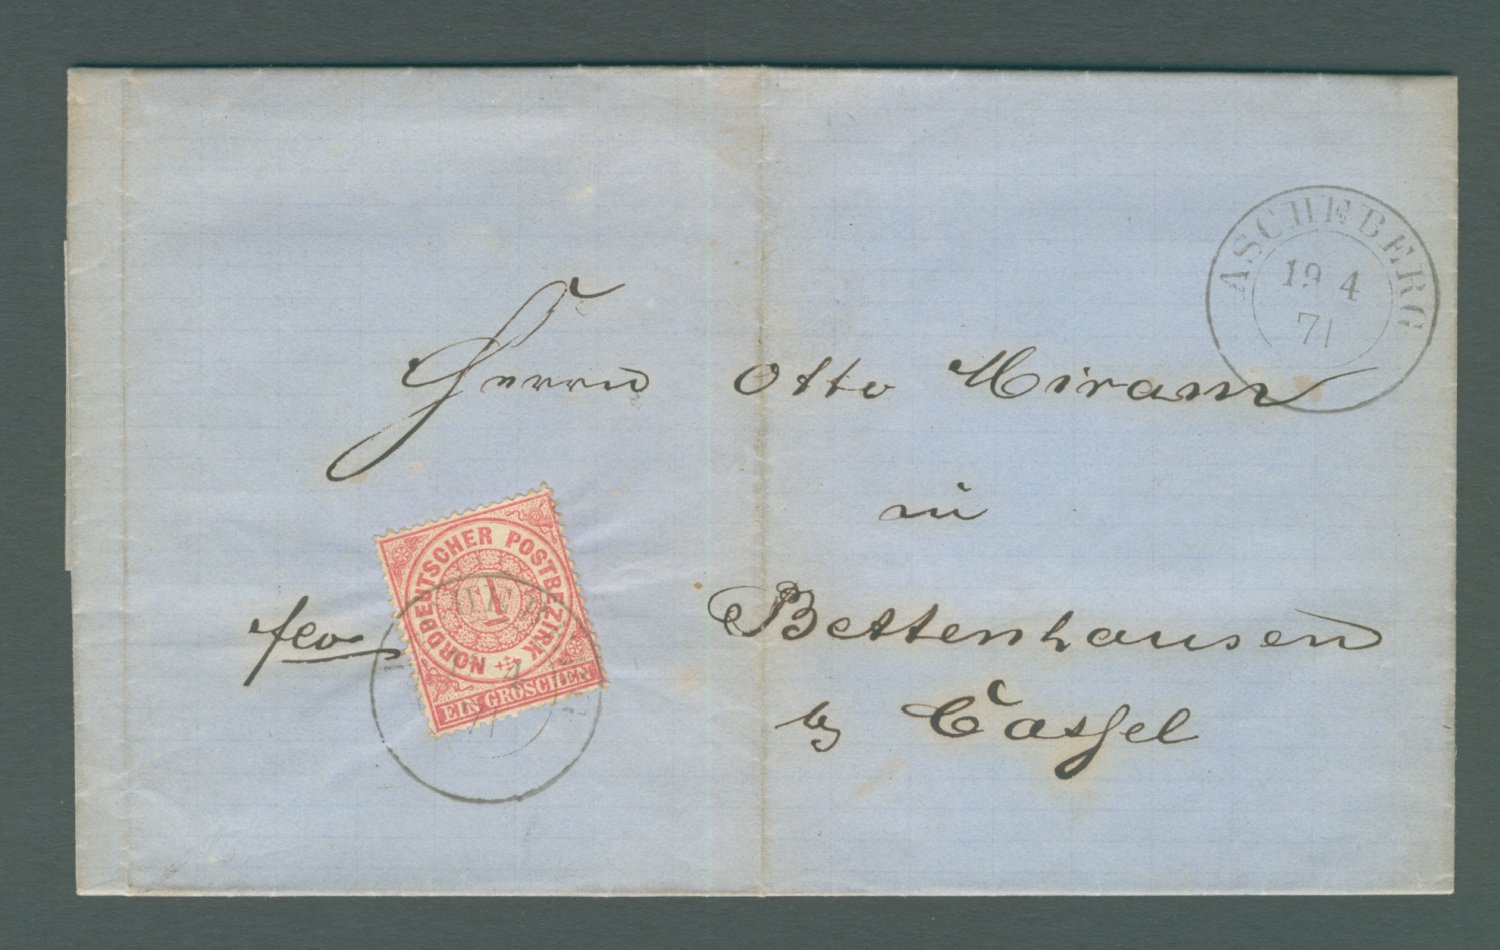 ASCHEBERG
19 4
71
Herrn Otto Miram
in
fco Bettenhausen
by Cassel
NORDDEUTSCHER POSTBEZIRK
1
EIN GROSCHEN